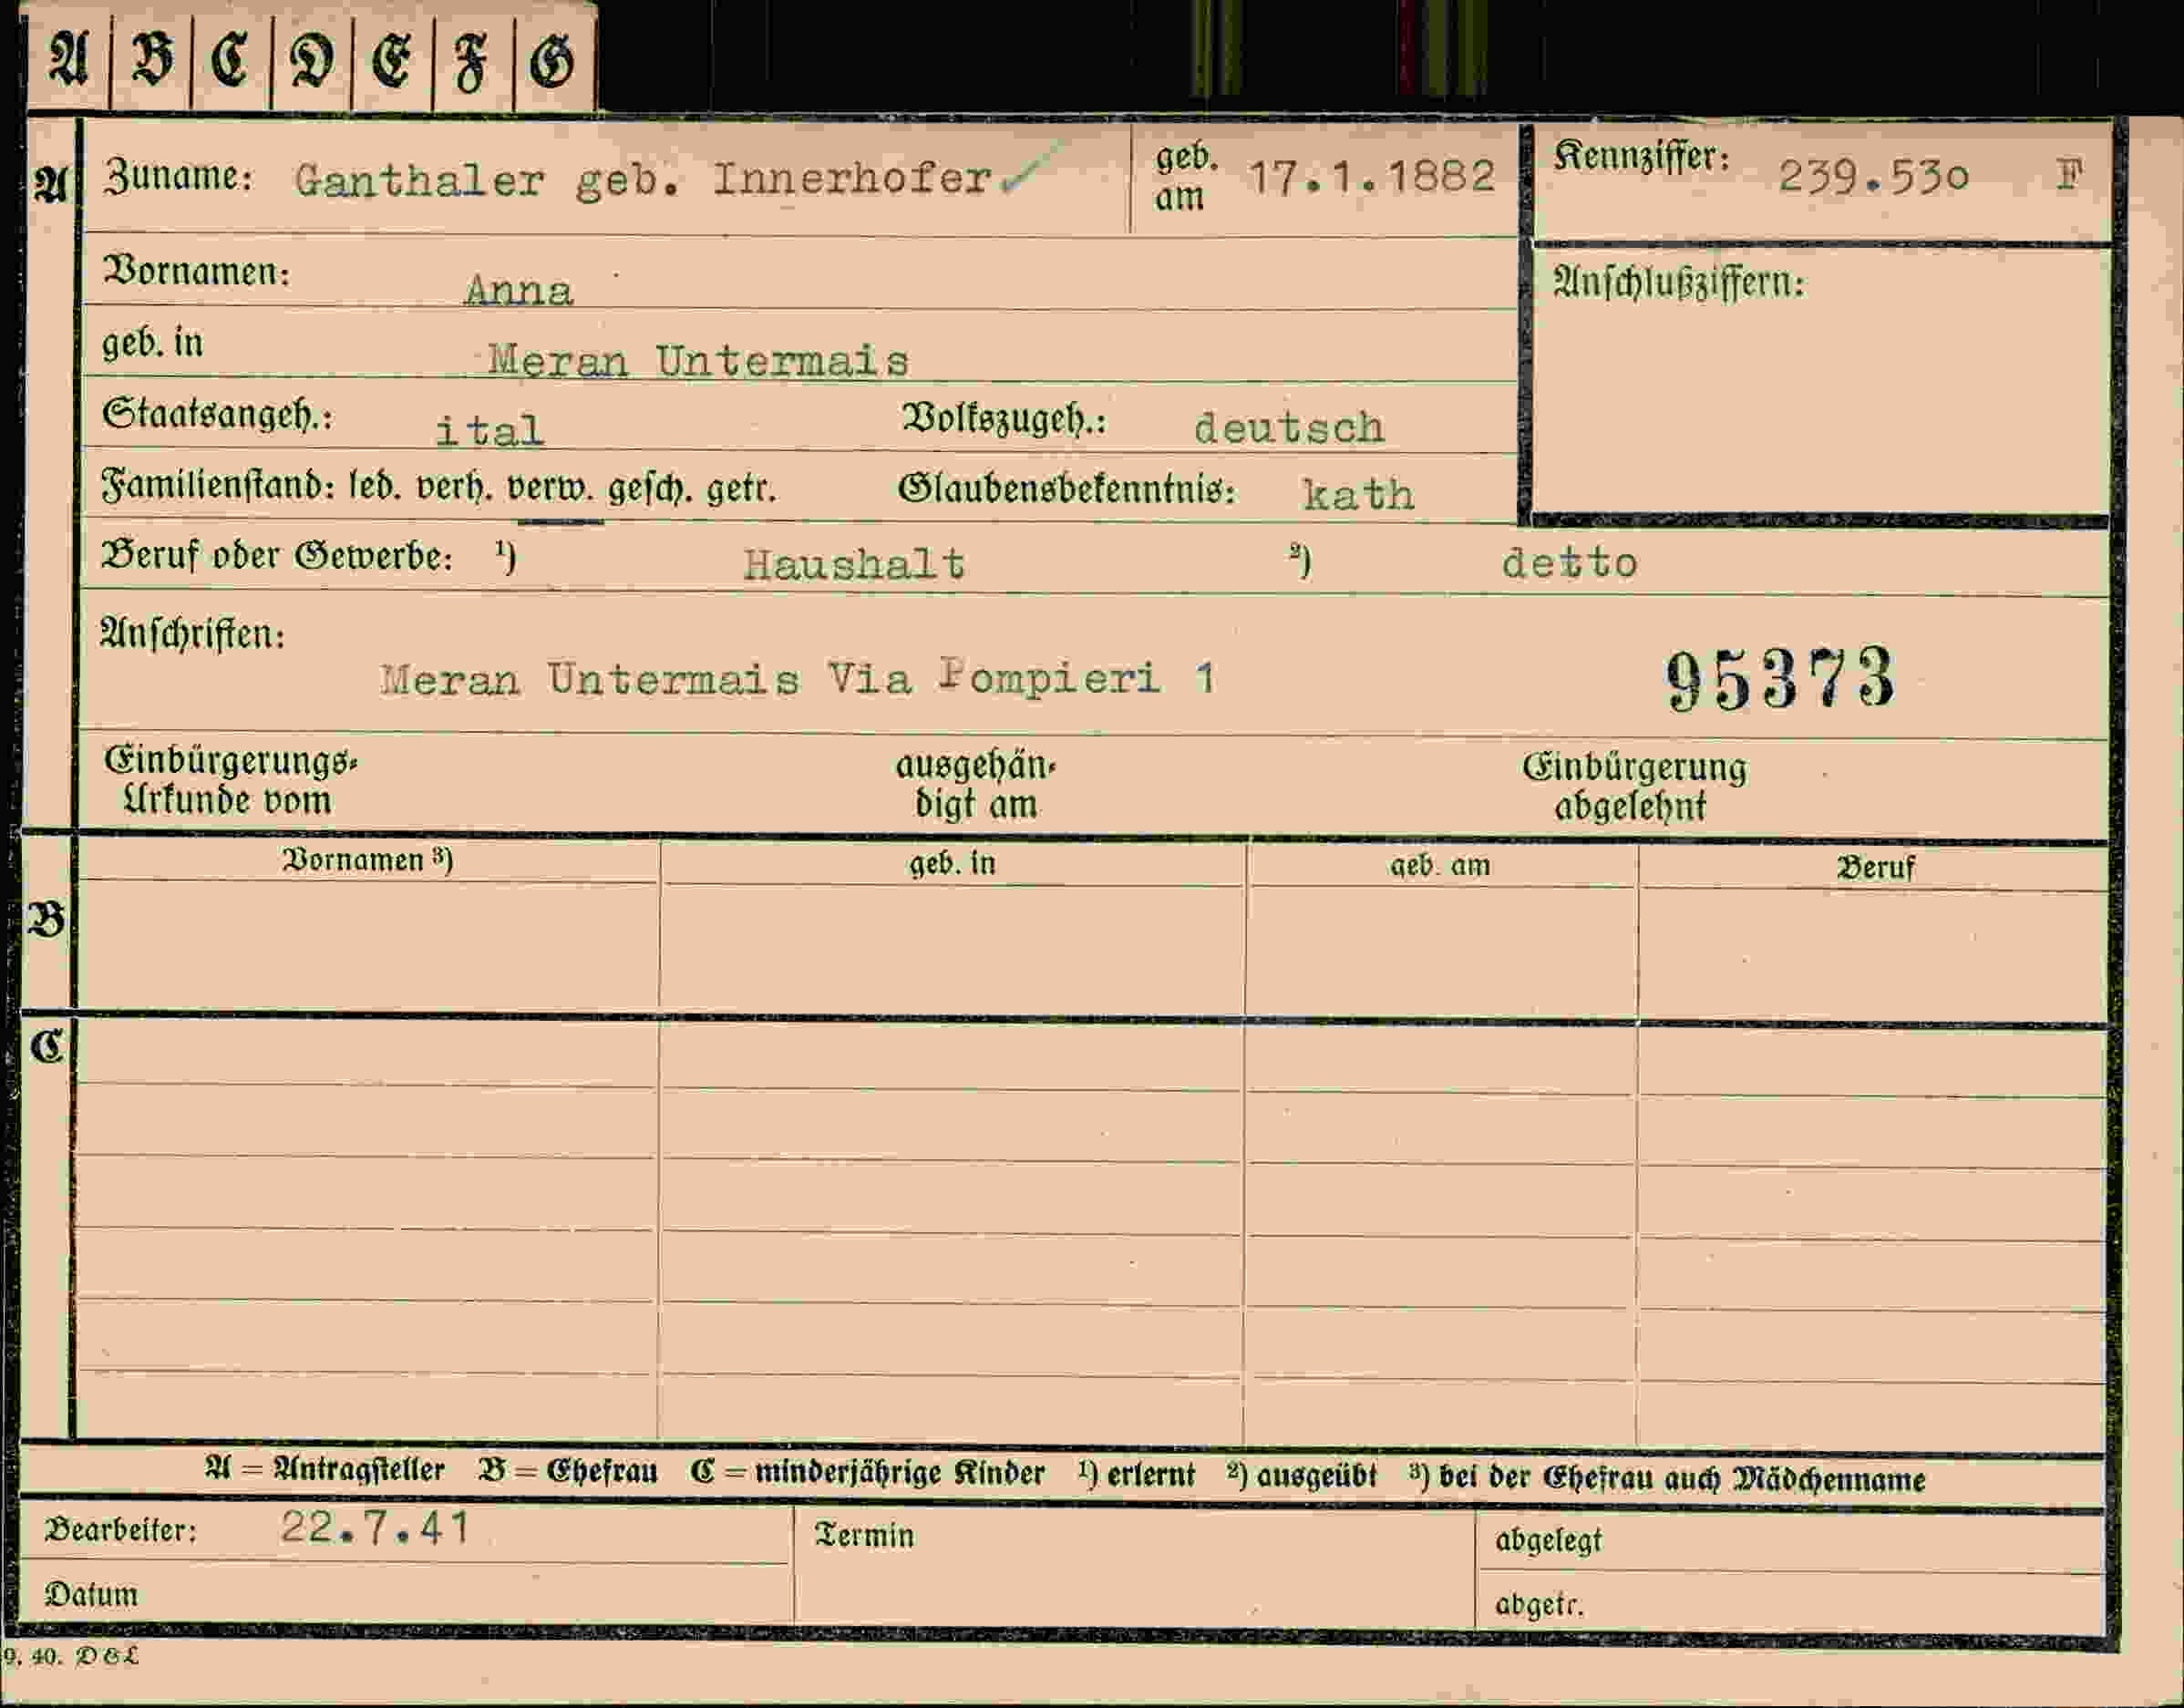 A B C D E F G
A Zuname: Ganthaler geb. Innerhofer geb. am 17.1.1882 Kennziffer: 239.530 F
Vornamen: Anna Anschlußziffern:
geb. in Meran Untermais
Staatsangeh.: ital Volkszugeh.: deutsch
Familienstand: led. verh. verw. gesch. getr. Glaubensbekenntnis: kath
Beruf oder Gewerbe: ¹) Haushalt ²) detto
Anschriften:
Meran Untermais Via Pompieri 1 95373
Einbürgerungs- Urkunde vom ausgehän- digt am Einbürgerung abgelehnt
B Vornamen ³) geb. in geb. am Beruf
C
A = Antragsteller B = Ehefrau C = minderjährige Kinder ¹) erlernt ²) ausgeübt ³) bei der Ehefrau auch Mädchenname
Bearbeiter: 22.7.41 Termin abgelegt
Datum abgetr.
9. 40. D&L